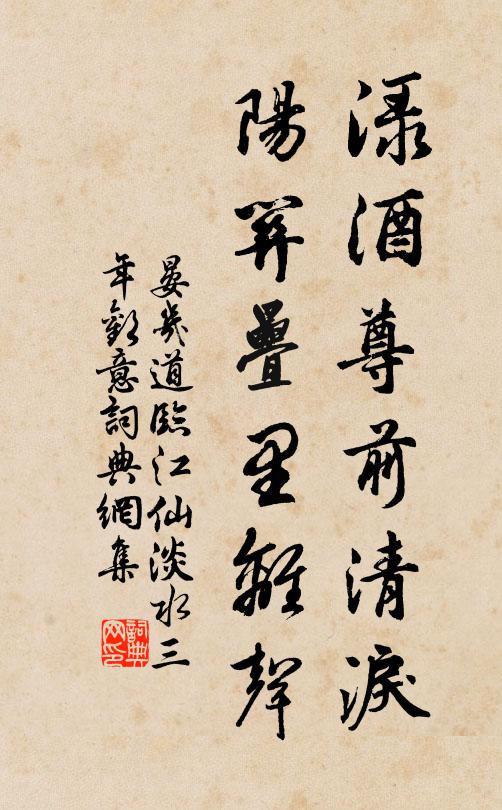 渌酒尊前清淚
陽關疊里離聲
晏幾道臨江仙淡水三
年歡意詞典網集
詞典網印